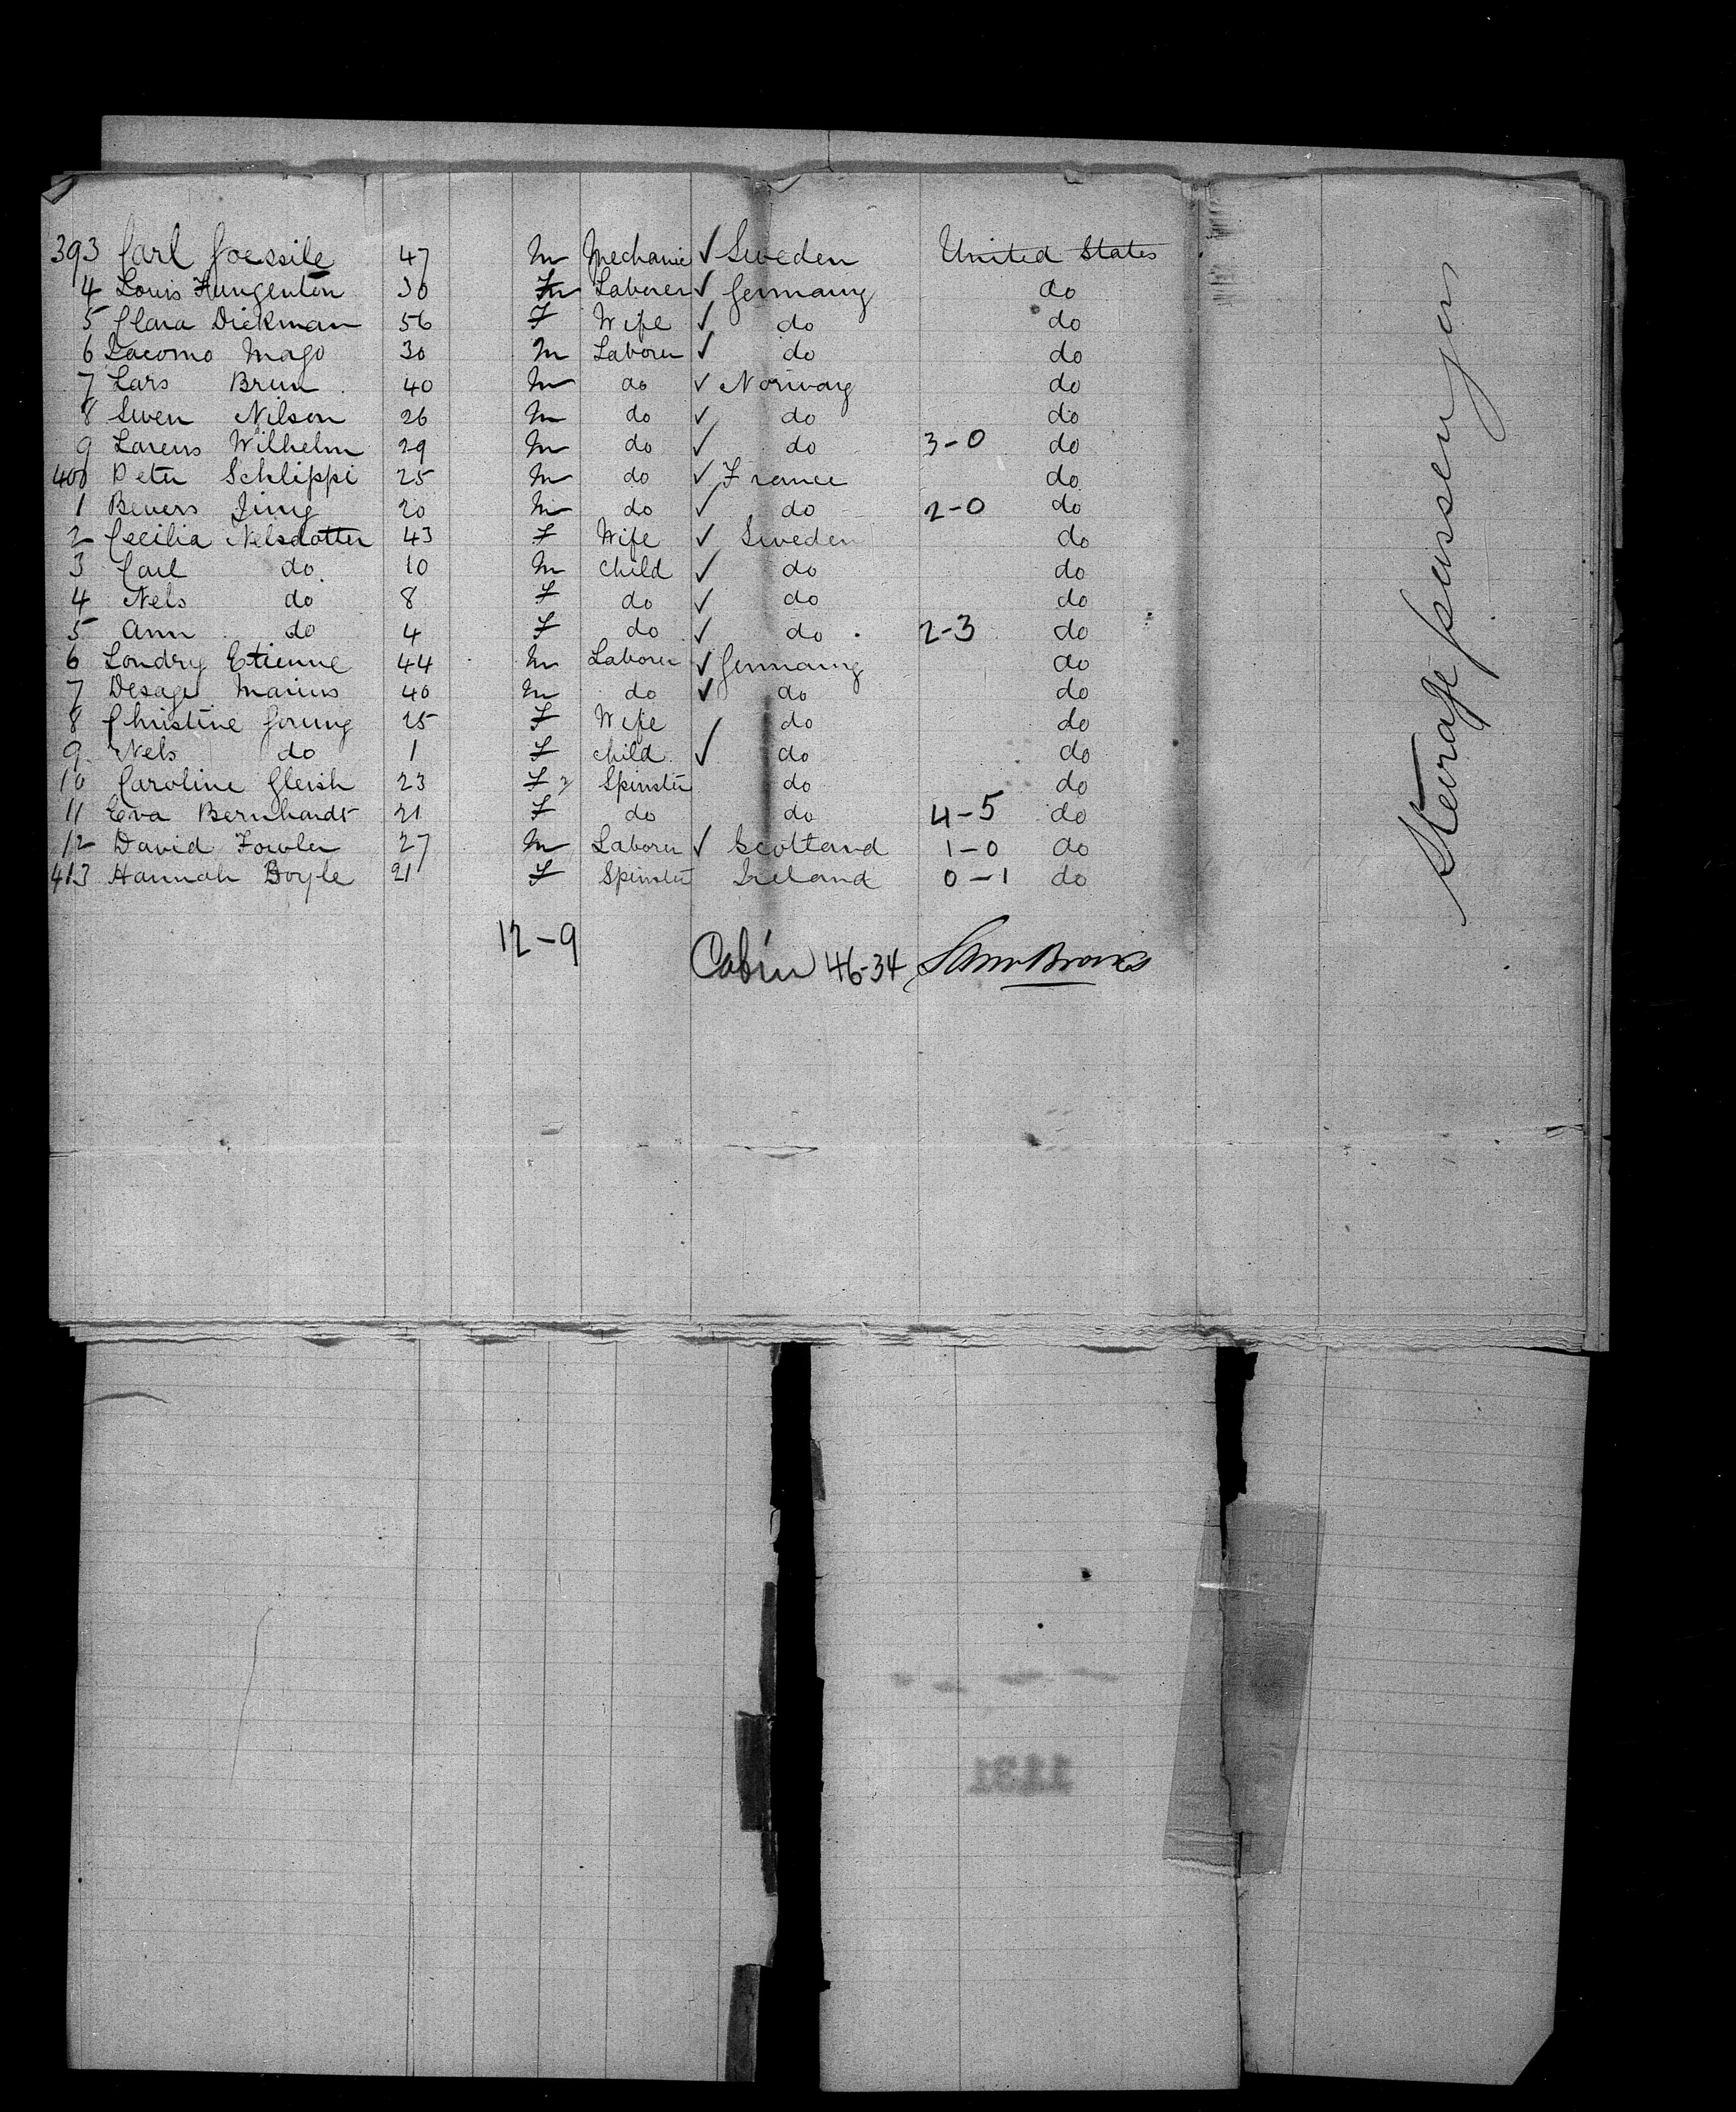 393 Carl Goessile 47 M Mechanic ✓ Sweden United States
4 Louis Hungenton 30 M Laborer ✓ Germany do
5 Clara Dickman 56 F Wife ✓ do do
6 Lacomo Mago 30 M Laborer ✓ do do
7 Lars Brun 40 M do ✓ Norway do
8 Swen Nilson 26 M do ✓ do do
9 Larens Wilhelm 29 M do ✓ do 3-0 do
400 Peter Schlippi 25 M do ✓ France do
1 Bevers Jung 20 M do ✓ do 2-0 do
2 Cecilia Nelsdotter 43 F Wife ✓ Sweden do
3 Carl do 10 M child ✓ do do
4 Nels do 8 F do ✓ do do
5 Ann do 4 F do ✓ do 2-3 do
6 Londry Etienne 44 M Laborer ✓ Germany do
7 Desage Marius 40 M do ✓ do do
8 Christine Goung 25 F Wife ✓ do do
9 Nels do 1 F child ✓ do do
10 Caroline Gleish 23 F Spinster do do
11 Eva Bernhardt 21 F do do 4-5 do
12 David Fowler 27 M Laborer ✓ Scotland 1-0 do
413 Hannah Boyle 21 F Spinster Ireland 0-1 do
12-9
Cabin 46-34 Saml Brooks
Steerage passenger
1131